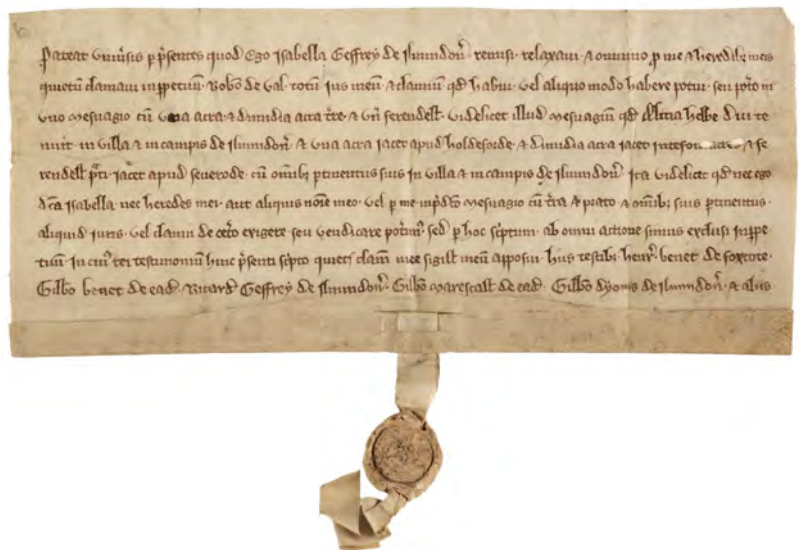 Pateat univ͛sis p p̃sentes quod Ego Isabella Geffrey de Ilmindon̄ remisi relaxavi ⁊ omnino p me ⁊ heredibꝫ meis
quietū clamavi inppetuū Rob̃o de Val totū ius meū ⁊ clamiū qd̃ habui vel aliquo modo habere potui seu pot̃o in
uno mesuagio cū una acra ⁊ dimidia acra t̃re ⁊ un̄ ferendell̃ videlicet illud mesuagiū qd̃ Alitia diu te
nuit in villa ⁊ in campis de Ilmindon̄ ⁊ una acra iacet apud holdeforde ⁊ dimidia acra iacet ⁊ fe
rendell̃ p̃ti iacet apud severode cū om̄ibꝫ ptinentiis suis in villa ⁊ in campis de Ilmindon̄ Ita videlicet qd̃ nec ego
d̃c̃a Isabella nec heredes mei aut aliquis noīe meo vel p me inp̃dc̃o mesuagio cū t̃ra ⁊ prato ⁊ om̄ibꝫ suis ptinentiis
aliquid iuris vel clamii de cet̃o exigere seu vendicare pot̃im᷒ sed p hoc sc̃ptum ab omni actione simus exclusi inppe
tuū In cui᷒ rei testimoniū huic p̃senti sc̃pto quiete clam̄ mee sigill̃ meū apposui hiis testibꝫ henr̃ benet de foxcote
Gilb̃o benet de ead̃ Ricard̃ Geffrey de Ilmindon̄ Gilb̃o marescall̃ de ead̃ Gilb̃o dyonis de Ilmindon̄ ⁊ aliis